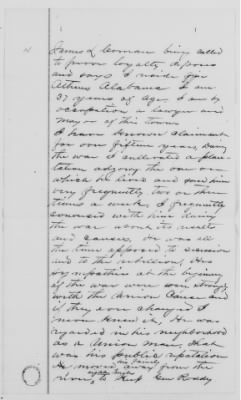 James L Cowan being called
to prove loyalty deposes
and says I reside
Athens Alabama I am
37 years of age, I am by
occupation a lawyer and
mayor of this town
I have known claimant
for over fifteen years, During
the war I cultivated a plan-
tation adjoing the one on
which he lived and saw him
very frequently two or three
times a week, I frequently
conversed with him during
the war about its results
and causes, He was all
the time opposed to secession
and to the rebellion, His
sympathies at the begining
of the war were very strongly
with the Union Cause and
if they ever changed I
never knew it, He was
regarded in his neighborhood
as a Union man, that
was his public reputation
his family
He moved away from the
river, to Keep Gen Roddy